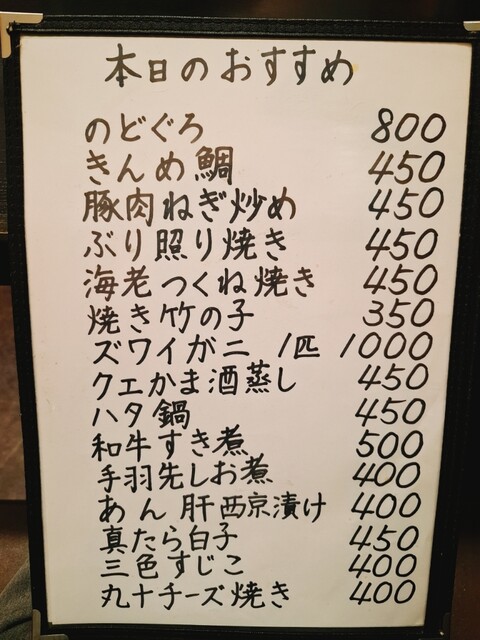 本日のおすすめ
のどぐろ 800
きんめ鯛 450
豚肉ねぎ炒め 450
ぶり照り焼き 450
海老つくね焼き 450
焼き竹の子 350
ズワイガニ 1匹 1000
クエかま酒蒸し 450
ハタ鍋 450
和牛すき煮 500
手羽先しお煮 400
あん肝西京漬け 400
真たら白子 450
三色すじこ 400
丸十チーズ焼き 400